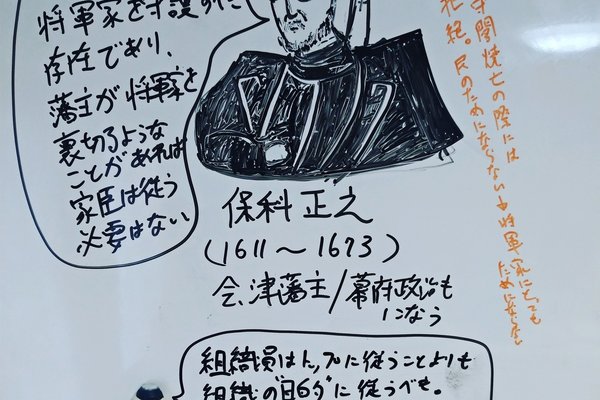 将軍家を守護すべき
存在であり、
藩主が将軍家を
裏切るような
ことがあれば
家臣は従う
必要はない
守閣焼亡の際には
拒絶。民のためにならない→将軍家にとっても
ためにならない
保科正之
(1611〜1673)
会津藩主/幕府政治も
になう
組織員はトップに従うことよりも
組織の"目的"に従うべき。